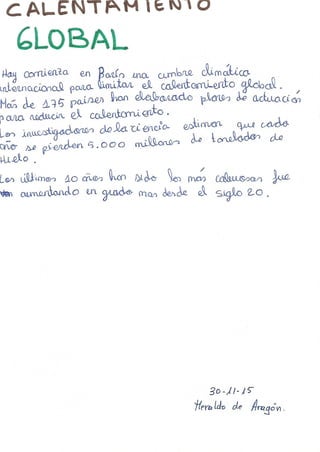 CALENTAMIENTO
GLOBAL
Hoy comienza en París una cumbre climática
internacional para limitar el calentamiento global.
Más de 175 países han elaborado planes de actuación
para reducir el calentamiento.
Los investigadores de la ciencia estiman que cada
año se pierden 5.000 millones de toneladas de
hielo.
Los últimos 10 años han sido los más calurosos fue
aumentando en grado mas desde el siglo 20.
30-11-15
Heraldo de Aragón.